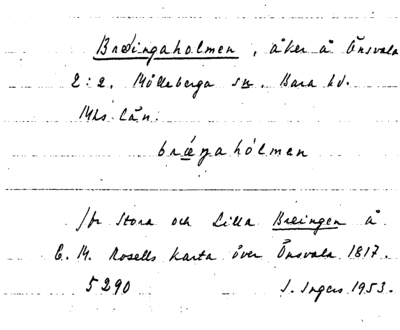 Bræingaholmen, åker å Önsvala
2:2. Mölleberga sn. Bara hd.
Mhs län.
bræ̀ŋahólmen
jfr Stora och Lilla Bræingen å
C. M. Rosells karta över Önsvala 1817.
5290 I. Ingers 1953.